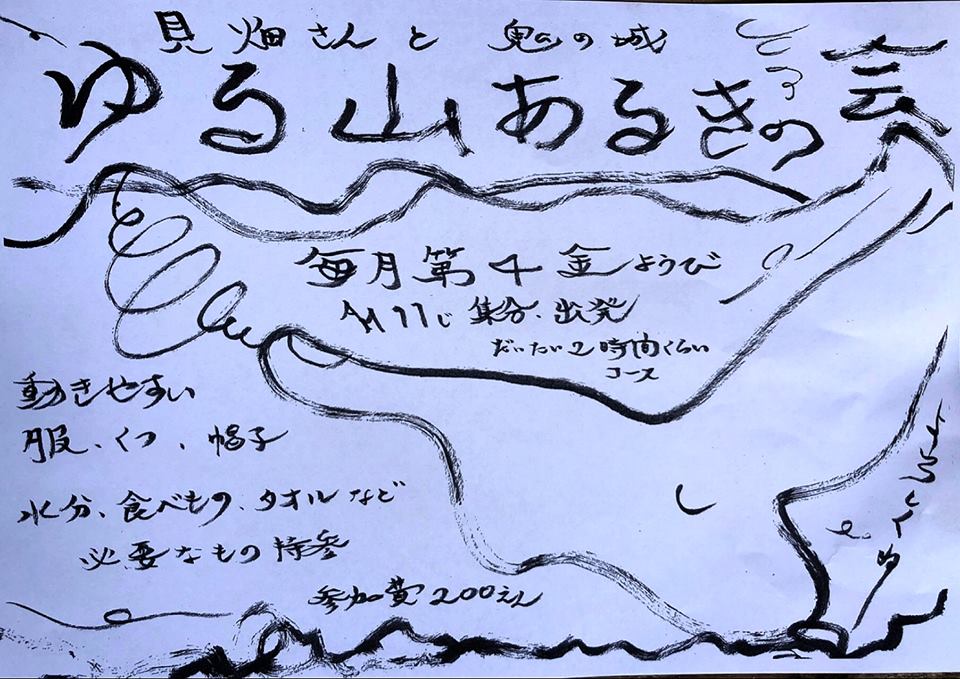 見畑さんと 鬼の城
ゆる山あるきの会
毎月第4金ようび
AM11じ 集合、出発
だいたい2時間くらい
コース
動きやすい
服、くつ、帽子
水分、食べもの、タオルなど
必要なもの持参
参加費200えん